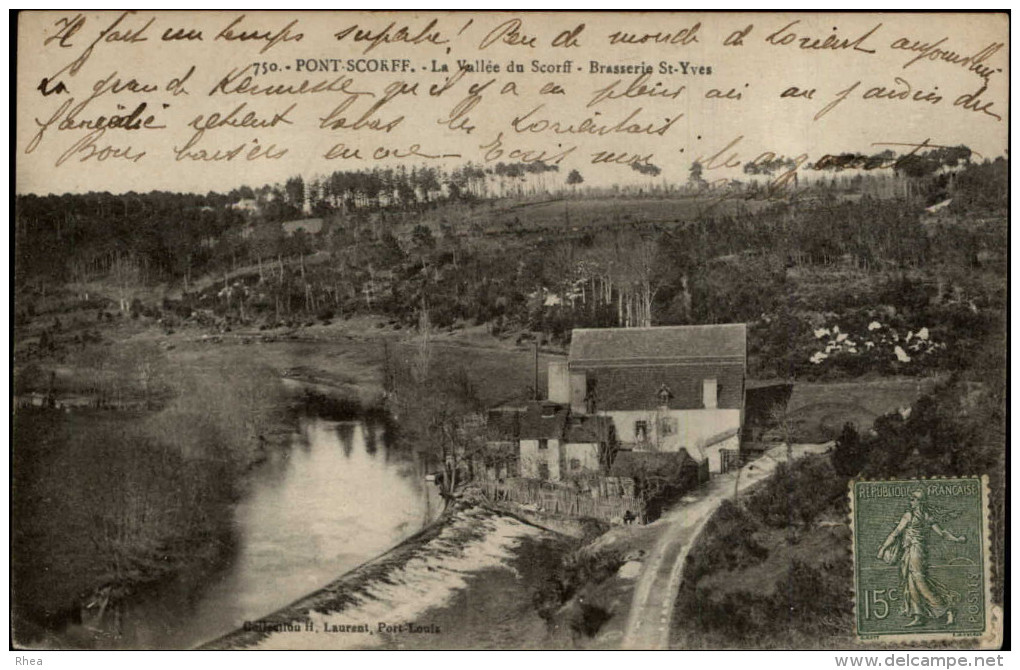 Il fait un temps superbe! Peu de monde de Lorient aujourd'hui
750. - PONT-SCORFF. - La Vallée du Scorff - Brasserie St-Yves
La grande Kermesse qu'il y a en plein air au jardin du
retient là bas les Lorientais
Bons baisers encore
REPUBLIQUE FRANÇAISE
15c
POSTES
Collection H. Laurent, Port-Louis
Rhea
www.delcampe.net